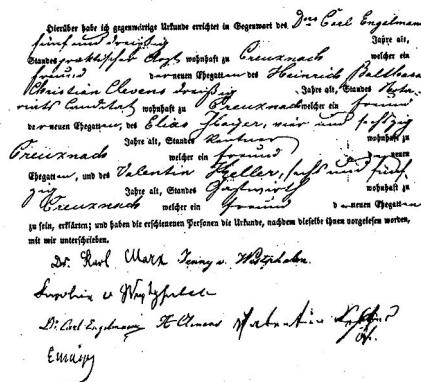 Hierüber habe ich gegenwärtige Urkunde errichtet in Gegenwart des Drs Carl Engelmann
fünf und dreißig Jahre alt,
Standes praktischer Arzt wohnhaft zu Creuznach welcher ein
freund der neuen Ehegatten, des Heinrich Balthasar
Christian Clevens dreißig Jahre alt, Standes Nota-
riats Candidat wohnhaft zu Creuznach welcher ein freund
der neuen Ehegatten, des Elias Mayer, vier und sechzig
Jahre alt, Standes Rentner wohnhaft zu
Creuznach welcher ein freund der neuen
Ehegatten, und des Valentin Keller, sechs und fünf-
zig Jahre alt, Standes Gastwirt wohnhaft zu
Creuznach welcher ein freund der neuen Ehegatten
zu sein, erklärten; und haben die erschienenen Personen die Urkunde, nachdem dieselbe ihnen vorgelesen worden,
mit mir unterschrieben.
Dr. Karl Marx Jenny v. Westphalen.
v Westphalen
Dr. Carl Engelmann H Clevens Valentin Keller